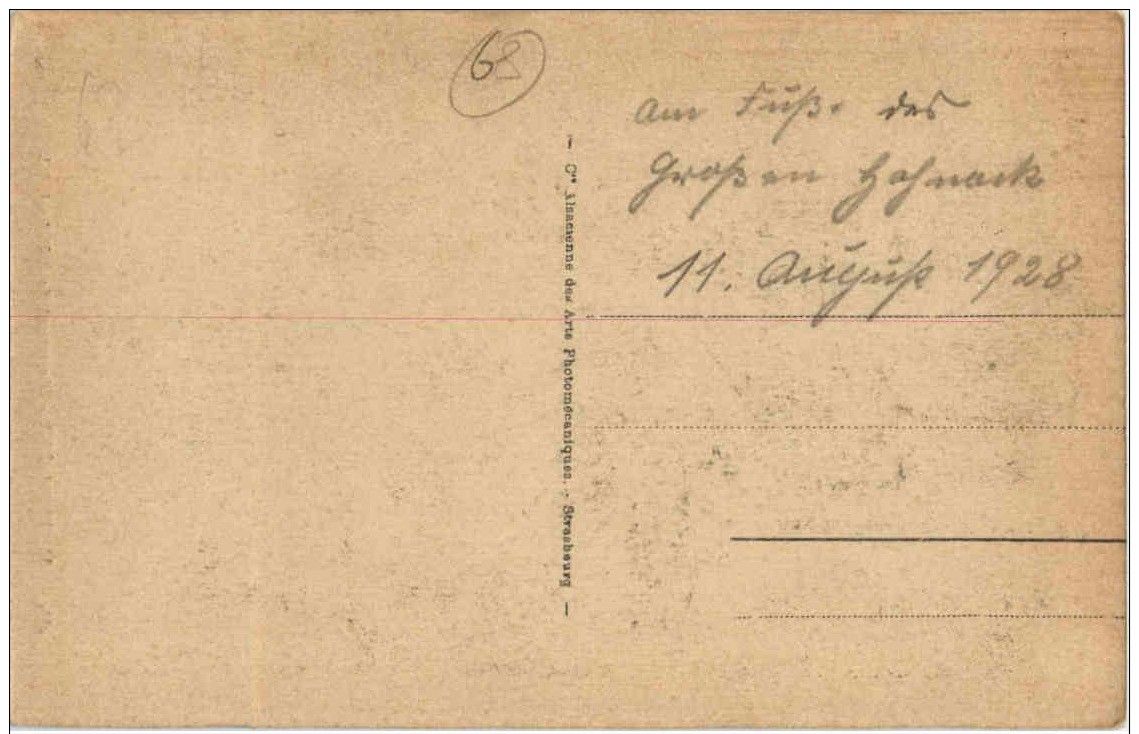 68
Am Fuße des
Großen Hohnack
11. August 1928
— Cie Alsacienne des Arts Photomécaniques. - Strasbourg —